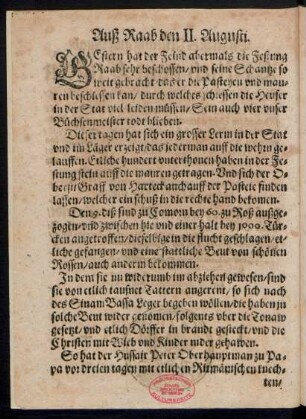 Auß Raab den II. Augusti.
GEstern hat der Feind abermals die Festung
Raab sehr beschossen / vnd seine Schantze so
weit gebracht das er die Pasteyen vnd mau-
ren beschiessen kan / durch welches schiessen die Heuser
in der Stat viel leiden müssen / Sein auch vier vnser
Büchsenmeister todt blieben.
Dieser tagen hat sich ein grosser Lerm in der Stat
vnd im Läger erzeigt / das jederman auff die wehrn ge-
lauffen. Etliche hundert vnterthonen haben in der Fe-
stung stein auff die mauren getragen. Vnd sich der O-
berst Graff von Harteck auch auff der Pasteie finden
lassen / welcher ein schuß in die rechte hand bekomen.
Den 9. diß sind zu Comorn bey 60. zu Roß außge-
zogen / vnd zwischen hie vnd einer halt bey 1000. Tür-
cken angetroffen / dieselbige in die flucht geschlagen / et-
liche gefangen / vnd eine stattliche Beut von schönen
Rossen / auch anderm bekommen.
In dem sie im widerumb im abziehen gewesen / sind
sie von etlich tausnet Tattern angerent / so sich nach
des Sinam Bassa Leger begeben wöllen / die haben jn
solche Beut wider genomen / folgents vber die Tonaw
gesetzt / vnd etlich Dörffer in brandt gesteckt / vnd die
Christen mit Wieb vnd Kinder nider gehawen.
So hat der Hussarn Peter Oberhauptman zu Pa-
pa vor dreien tagen mit etlichen Ritmäuischen knech-
ten /